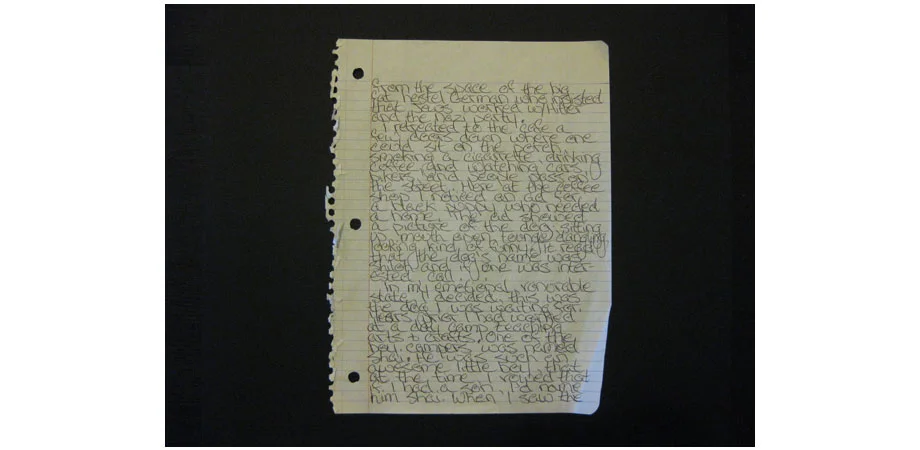 from the space of the big
fat hostel German who insisted
that Jews worked w/Hitler
and the Nazi party.
I retreated to the cafe a
few doors down where one
could sit on the porch
smoking a cigarette, drinking
coffee and watching cars
bikers and people pass on
the street. Here at the coffee
shop I noticed an ad for
a black puppy who needed
a home. The ad showed
a picture of the dog sitting
up mouth open tounge dangling
looking kind of funny. It read
that the dog's name was
Shiloh and if one was inter-
ested call
In my emotional, vonorable
state I decided this was
the dog I was waiting for.
Years prior I had worked
at a day camp teaching
arts & crafts. One of the
boy campers was named
Shai. He was such an
awesome little boy that
at the time I vowed that
if I had a son I'd name
him Shai. When I saw the